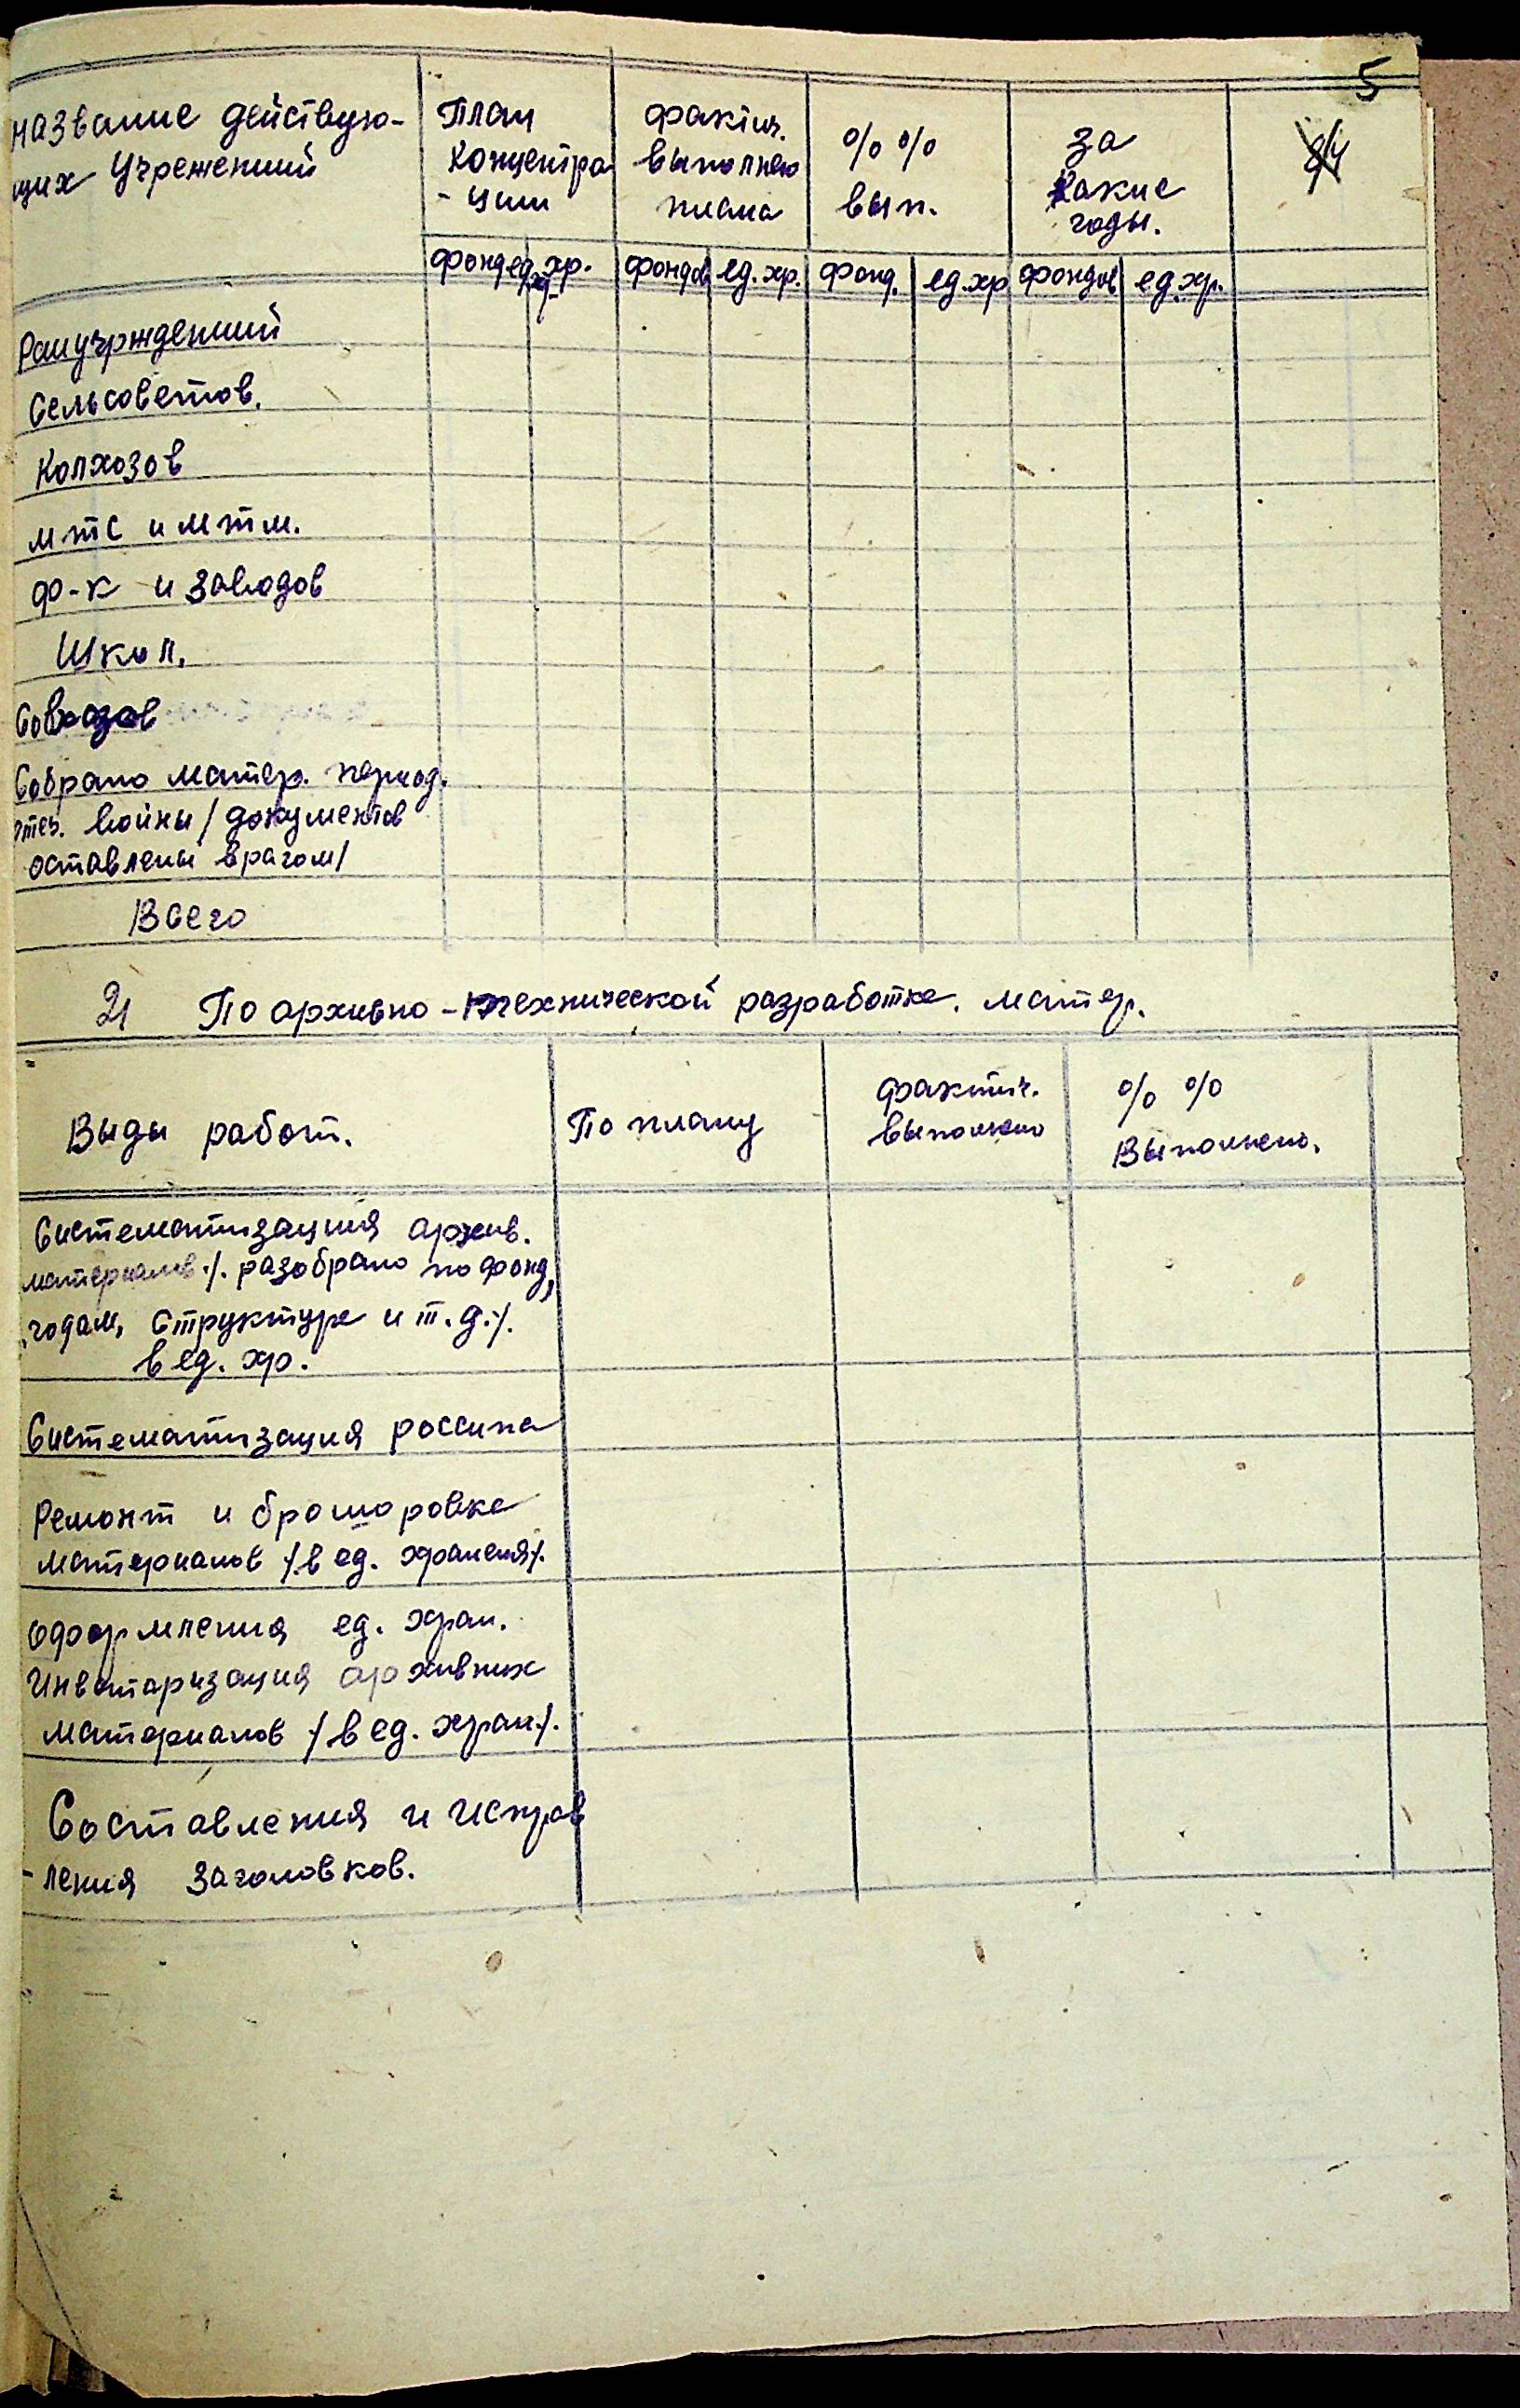 5
название действую-
щих учреженний
План
концентра
-ции
фактич.
выполнено
плана
% %
вып.
за
какие
годы.
фонд ед. хр.
фондов ед. хр.
фонд. ед. хр
фондов ед. хр.
Раиучрждений
Сельсоветов.
Колхозов
мтс и мтм.
ф-к и заводов
Школ.
Совхозов
Собрано матер. период.
отеч. войны / документов
оставлены врагом/
Всего
2/ По архивно-технической разработке. матер.
Виды работ.
По плану
фактич.
выполнено
% %
Выполнено.
Систематизация архив.
материалов ./. разобрано по фонд,
годам, структуре и т.д./.
в ед. хр.
Систематизация россипа
Ремонт и брошоровке
материалов /.в ед. хранения/.
Оформления ед. хран.
Инвытаризация архивних
материалов /в ед. хран/.
Составления и исправ
-ления заголовков.